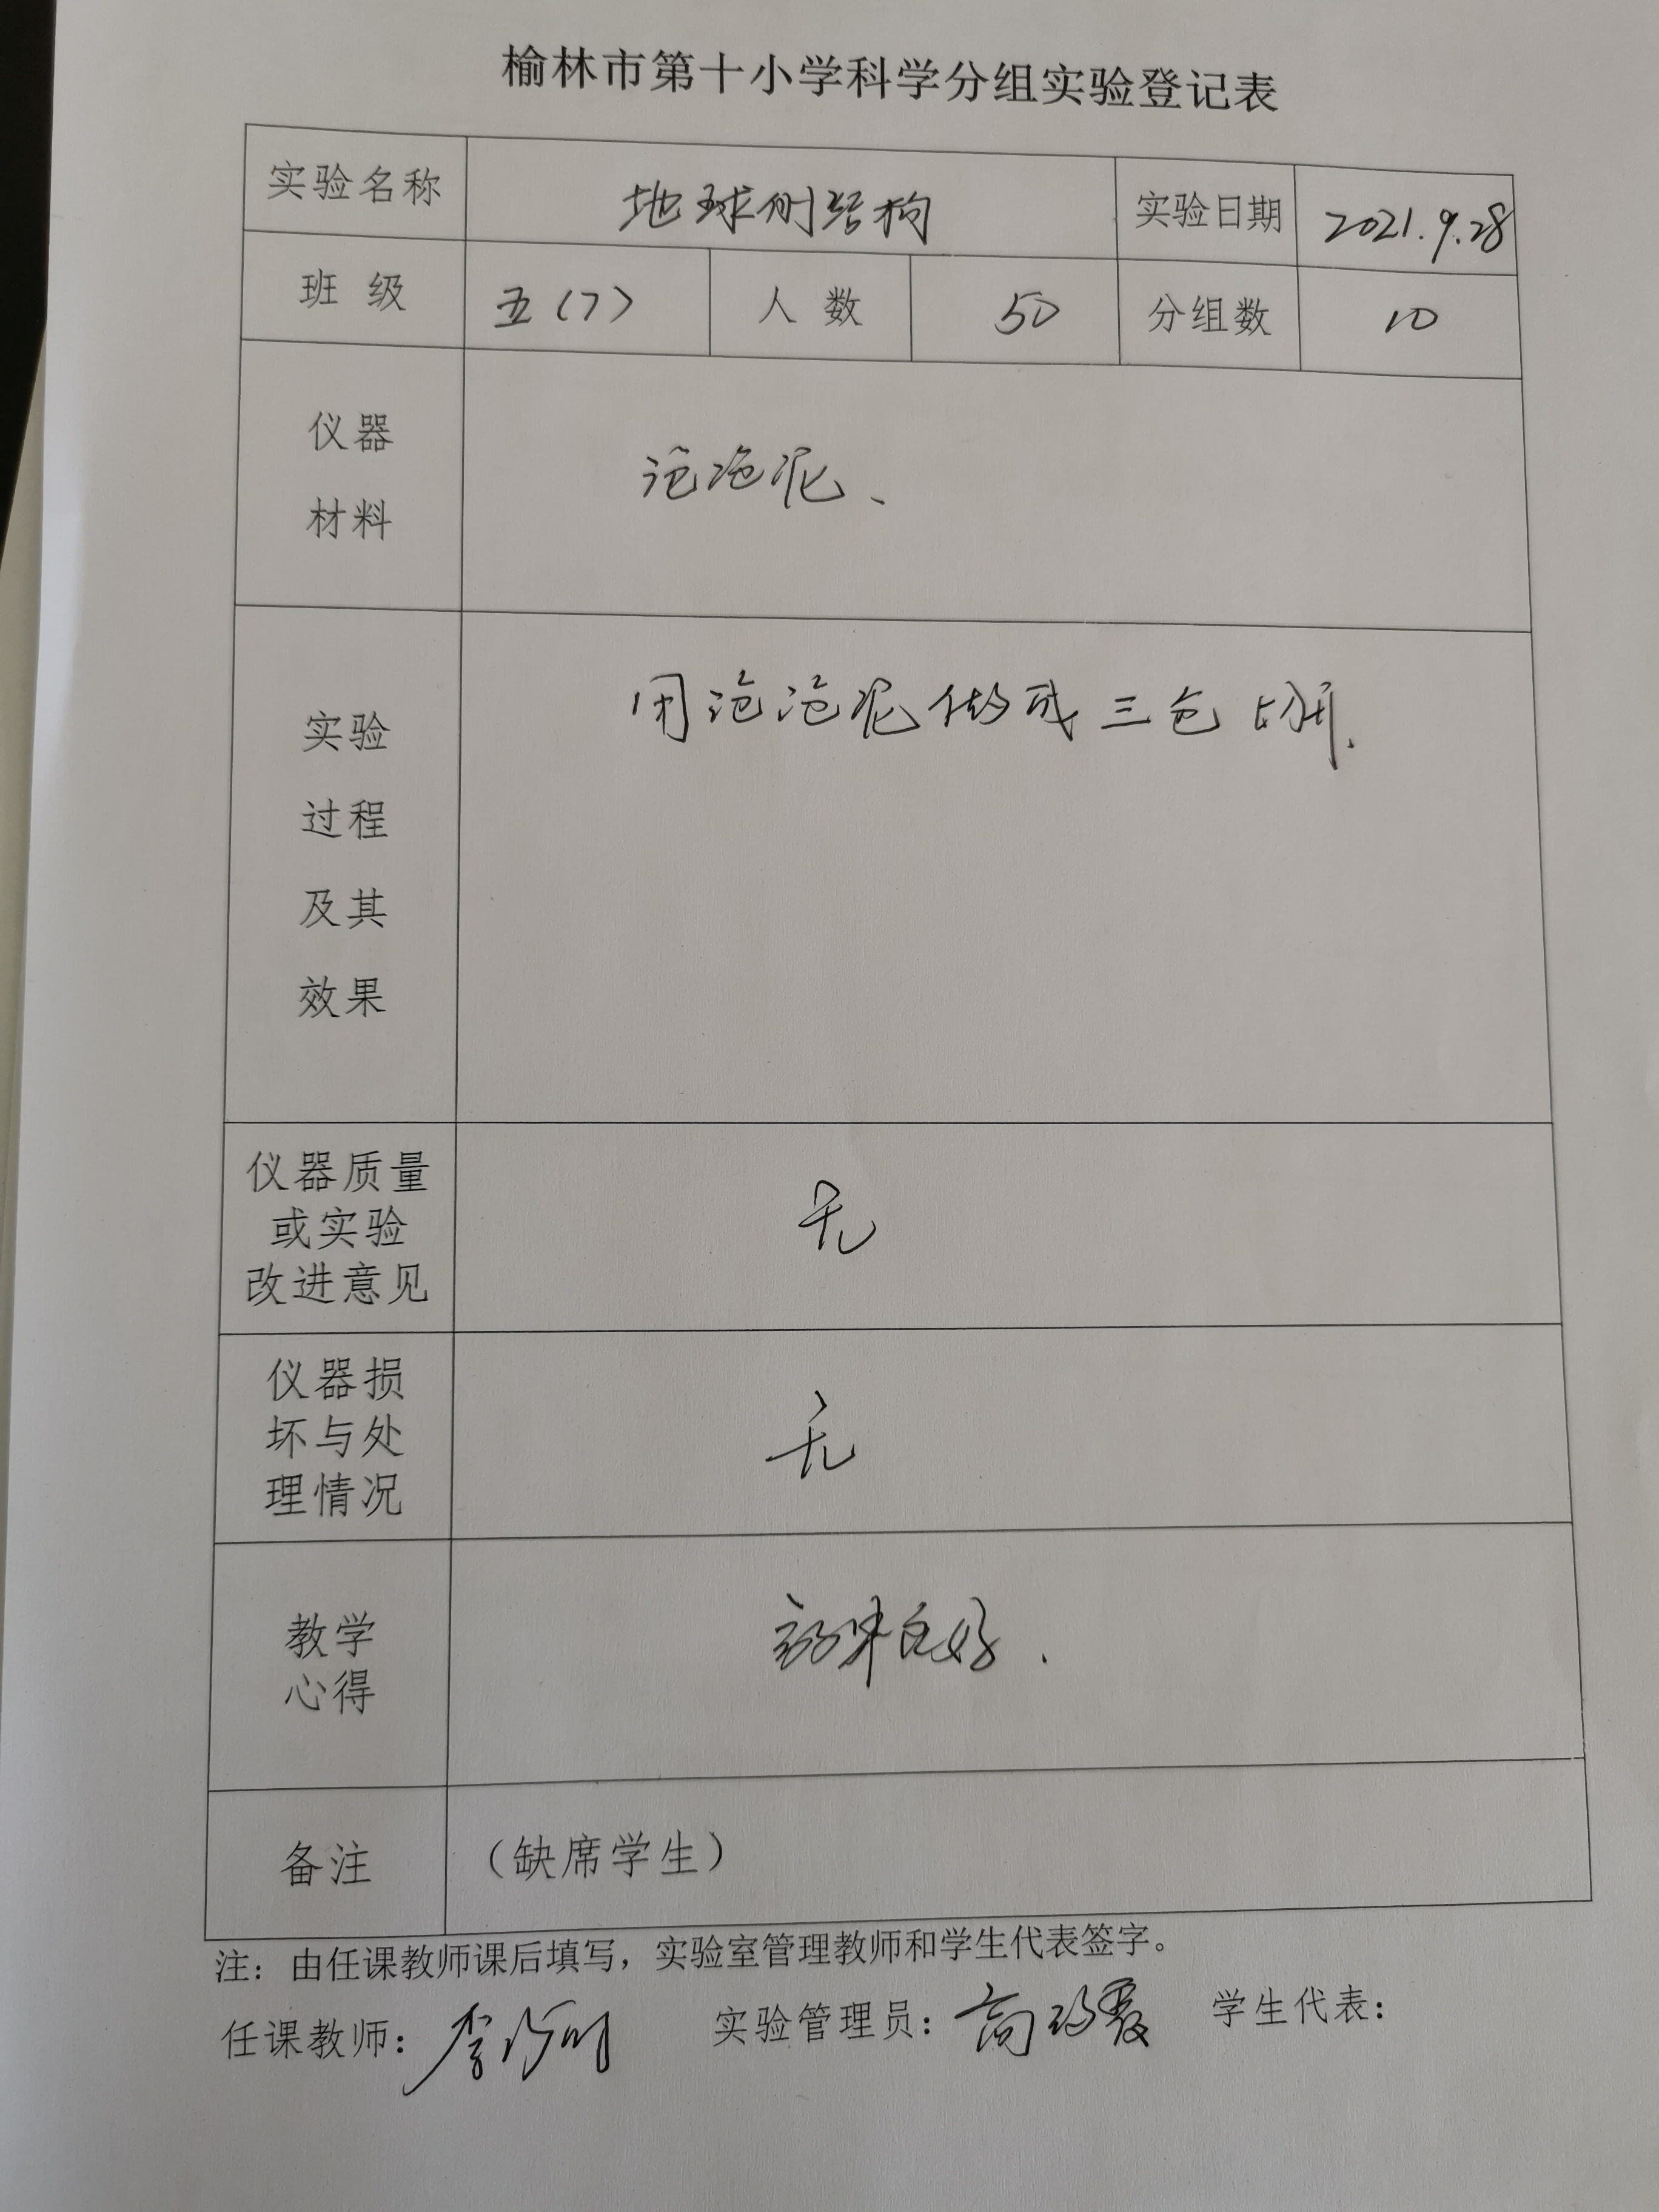 榆林市第十小学科学分组实验登记表
实验名称 地球的结构 实验日期 2021.9.28
班 级 五（7） 人 数 50 分组数 10
仪器
材料
泡泡泥、
用泡泡泥做成三色
实验
过程
及其
效果
仪器质量
或实验
改进意见
无
仪器损
坏与处
理情况
无
教学
心得
效果良好.
备注 （缺席学生）
注：由任课教师课后填写，实验室管理教师和学生代表签字。
任课教师：李 实验管理员：高 学生代表：